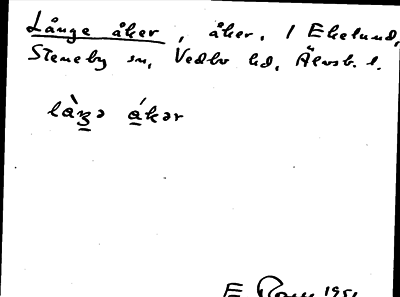 Långe åker, åker, 1 Ekelund,
Steneby sn, Vedbo hd, Älvsb. l.
là̱ŋ̱ə á̱kər
E 195